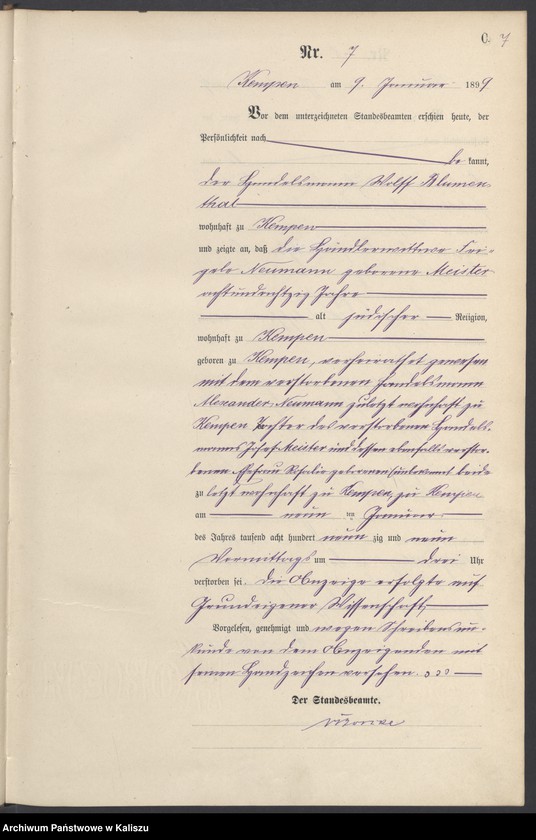 C. 7
Nr. 7
Kempen am 9. Januar 1899
Vor dem unterzeichneten Standesbeamten erschien heute, der
Persönlichkeit nach
be kannt,
der Handelsmann Wolff Blumen
thal
wohnhaft zu Kempen
und zeigte an, daß die Händlerwittwe Frei-
gele Neumann geborene Meister
achtundachtzig Jahre
alt jüdischer Religion,
wohnhaft zu Kempen
geboren zu Kempen, verheirathet gewesen
mit dem verstorbenen Handelsmann
Alexander Neumann zuletzt wohnhaft zu
Kempen Tochter des verstorbenen Handels-
manns Josef Meister und dessen ebenfalls verstor-
benen Ehefrau Rosalie geborenen (unbekannt) beide
zu letzt wohnhaft zu Kempen, zu Kempen
am neun ten Januar
des Jahres tausend acht hundert neun zig und neun
Vormittags um drei Uhr
verstorben sei. Die Anzeige erfolgte auf
Grund eigener Wissenschaft,
Vorgelesen, genehmigt und wegen Schreibensun-
kunde von dem Anzeigenden mit
seinen Handzeichen versehen. ooo
Der Standesbeamte.
Archiwum Państwowe w Kaliszu